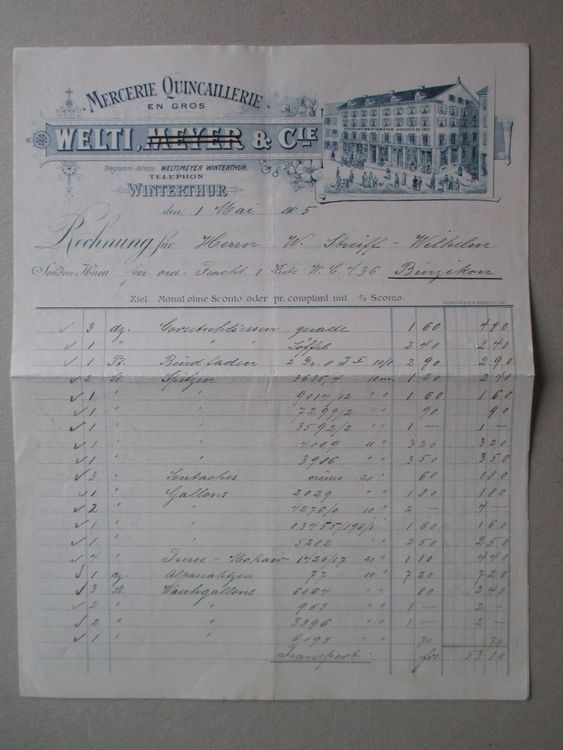 MERCERIE QUINCAILLERIE
EN GROS
WELTI, MEYER & CIE
Telegramm-Adresse: WELTIMEYER WINTERTHUR.
TELEPHON
WINTERTHUR
den 1 Mai 1905
Rechnung für Herrn W. Streiff-Wilhelm
Senden Ihnen per ord. Fracht 1 Kiste W. C. 436 Binzikon
Ziel Monat ohne Sconto oder pr. comptant mit % Sconto.
3 dz. Corsetschliessen gerade 1 60 4 80
1 " " " Löffel 2 40 2 40
1 Pt. Bindfaden 2 90 2 90
2 St. Spitzen 3635/4 10 m. 1 20 2 40
1 " " 9014/12 " " 1 60 1 60
1 " " 7290/2 " " 90 90
1 " " 3592/2 " " 1 — 1 —
1 " " 4069 11 " 3 20 3 20
1 " " 3986 " " 3 50 3 50
3 " Soutaches crème 20 " 60 1 80
1 " Gallons 2029 " " 1 80 1 80
2 " " 4276/0 10 " 2 — 4 —
1 " " " " 1 60 1 60
1 " " 5282 " " 2 50 2 50
4 " Tress-Mohair 1420/17 20 " 1 10 4 40
1 77 10 " 7 20 7 20
3 St. Waschgallons 6064 " " 80 2 40
2 " " 963 " " 1 — 2 —
2 " " 3396 " " 1 — 2 —
1 " " 6093 " " 70 70
Transport: frs. 53 10